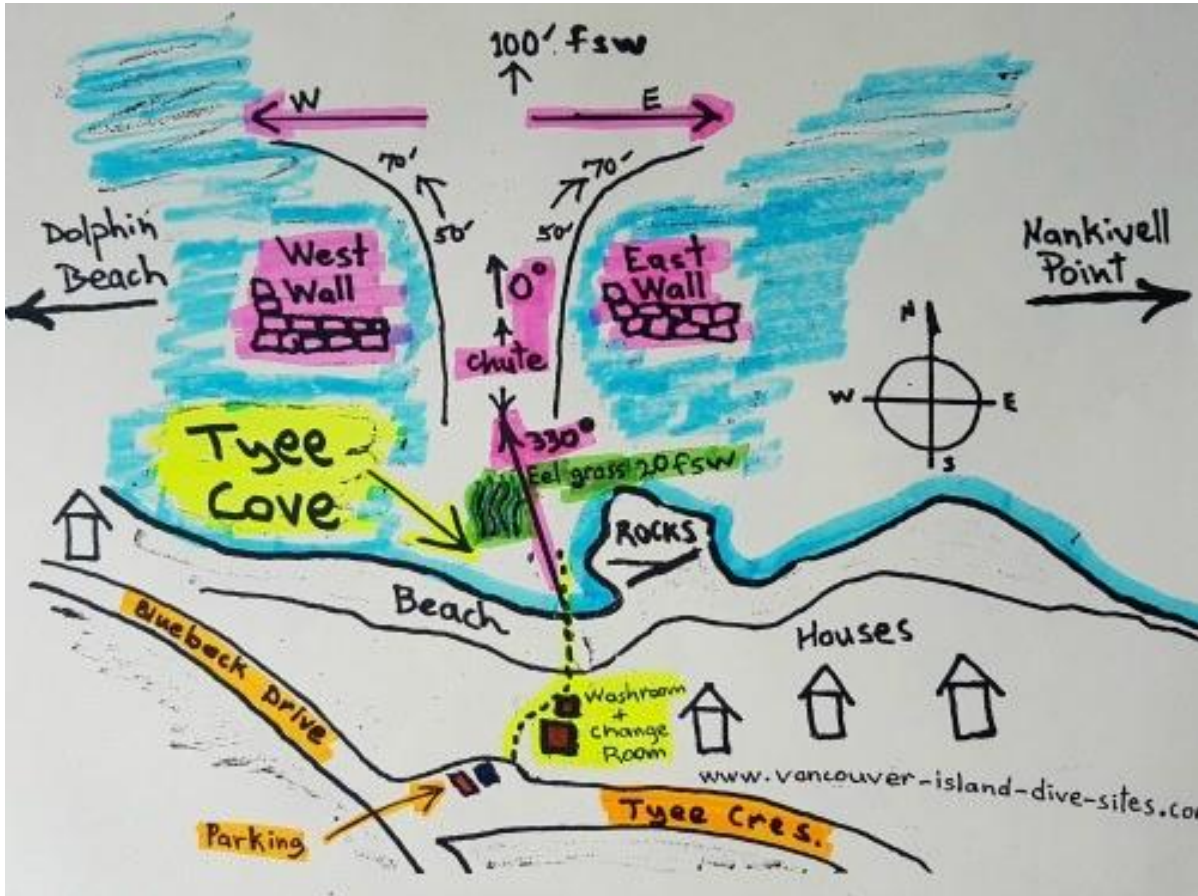 100' fsw
W
E
70'
70'
50'
50'
Dolphin
Beach
West
Wall
0°
East
Wall
Nankivell
Point
chute
N
W
E
S
330°
Eel grass 20 fsw
Tyee
Cove
ROCKS
Beach
Houses
Blueback Drive
Washroom
+
change
Room
www.vancouver-island-dive-sites.co
Tyee Cres.
Parking